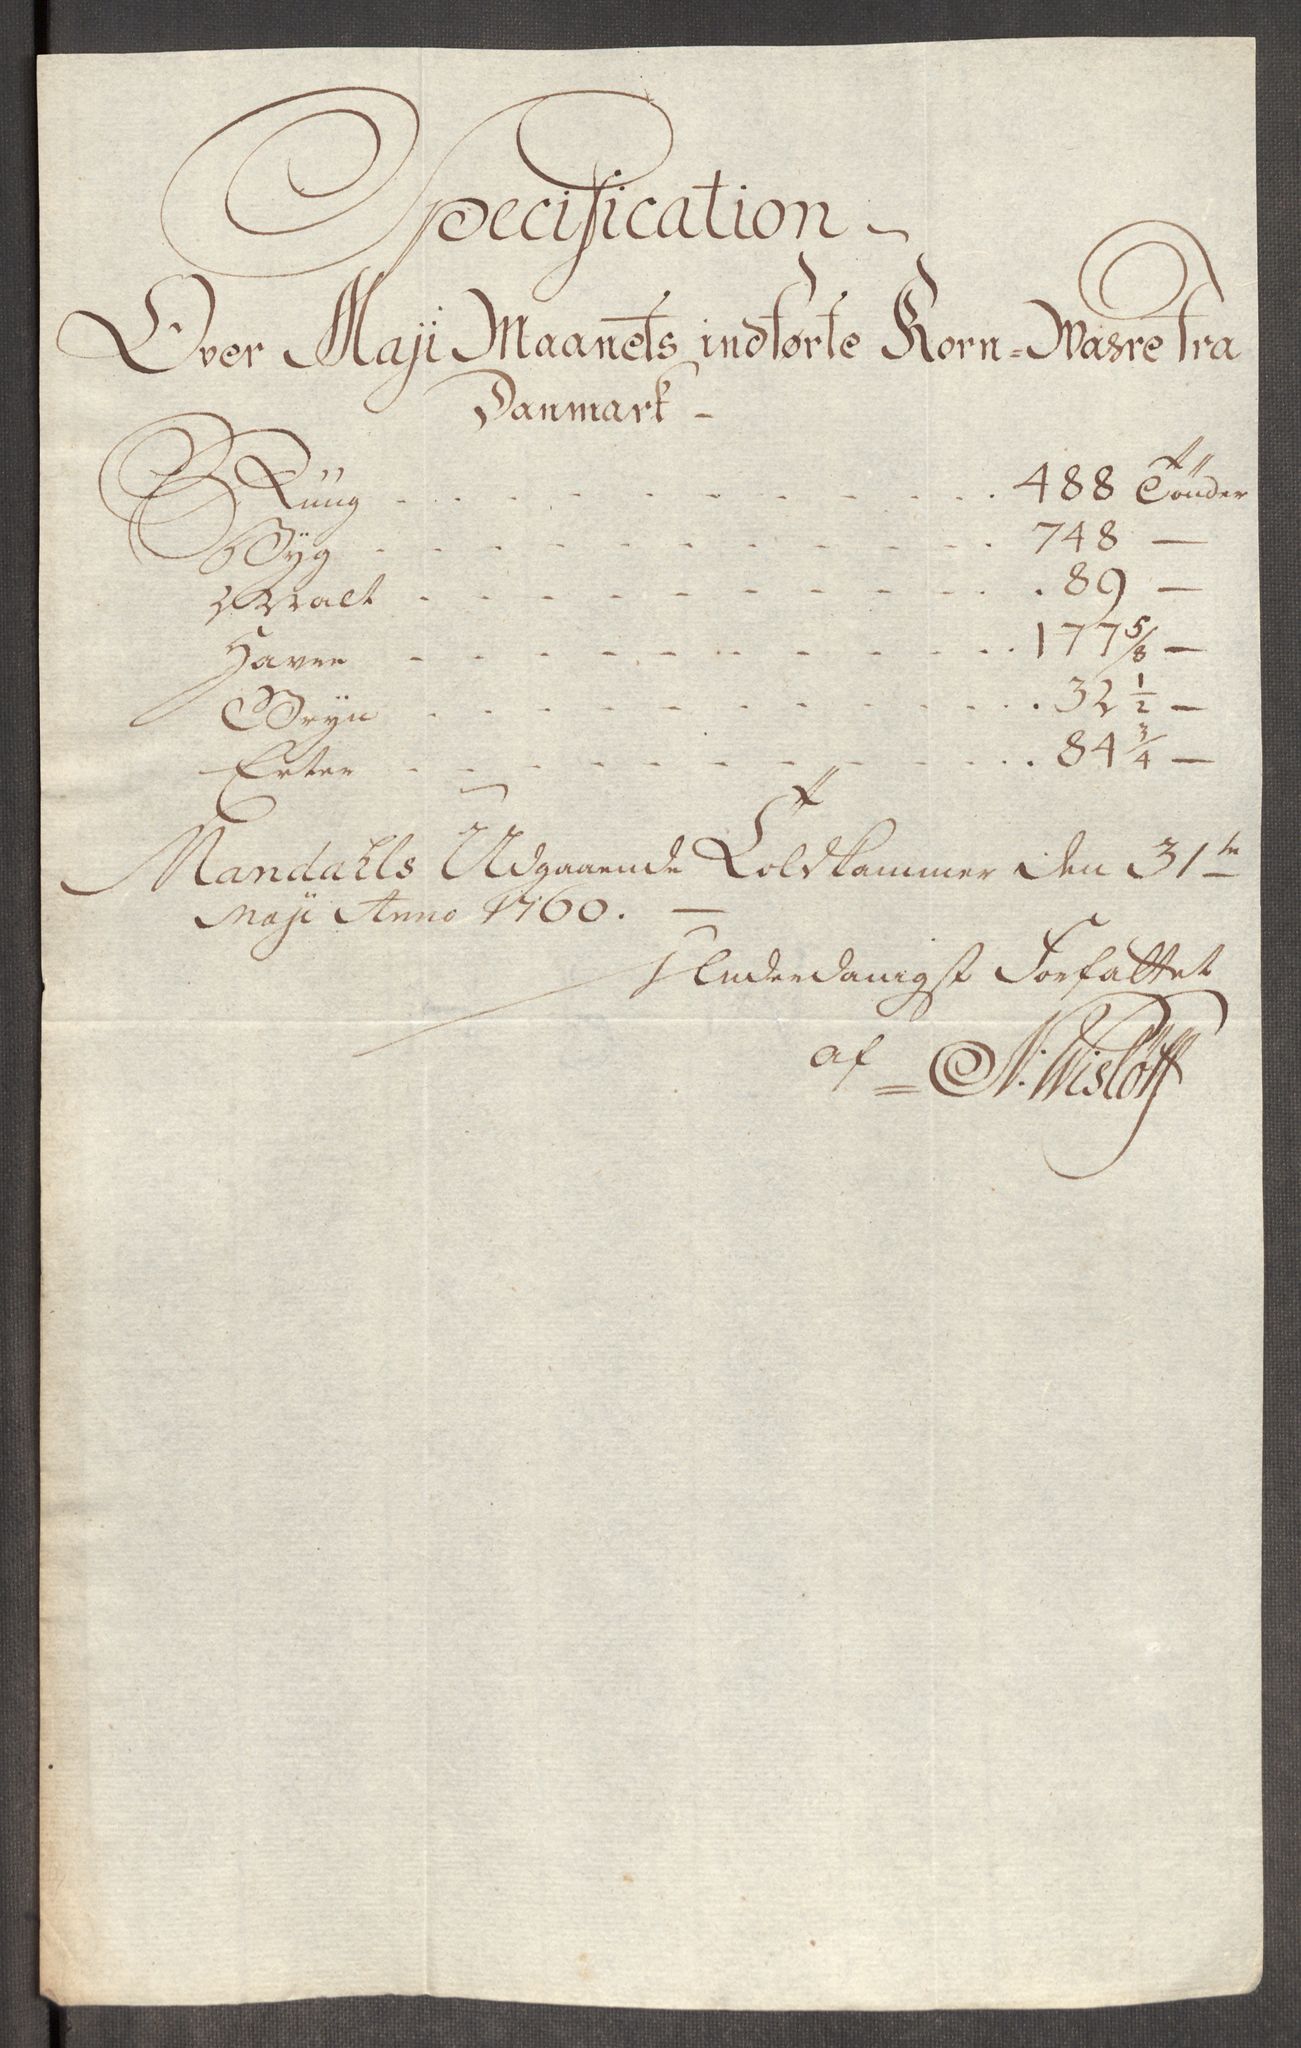 Specification
Over Maji Maanets indførte Korn=Waare fra
Danmark
Rüüg . . . . . . . . . . . . 488 Tönder
Byg . . . . . . . . . . . . 748 —
Malt . . . . . . . . . . . . 89 —
Havre . . . . . . . . . . . . 177 5/8 —
Gryn . . . . . . . . . . . . 32 1/2 —
Erter . . . . . . . . . . . . 84 3/4 —
Mandahls Udgaaende Toldkammer den 31te
Maji Anno 1760. —
Underdanigst Forfattet
af = N: Wisløff